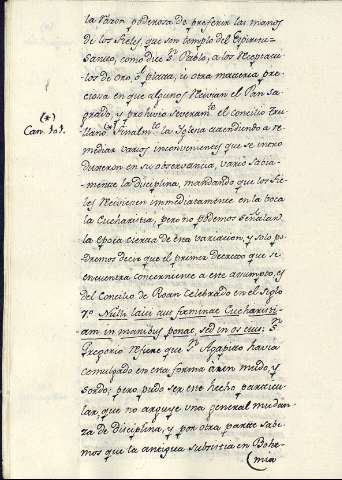 la razon poderosa de preferir las manos
de los Fieles, que son templo del Espiritu-
Santo, como dice Sn. Pablo, a los receptacu-
los de oro, ó plata, u otra materia pre-
ciosa en que algunos recivian el Pan sa-
grado, y prohivio severamte. el concilio Tru-
(*)
Can. 101.
llano (*) Finalmte. la Iglesia atendiendo a re-
mediar varios inconvenientes que se intro
dujeron en su observancia, varió sabia-
mente la disciplina, mandando que los Fie-
les reciviesen immediatamente en la boca
la Eucharistia, pero no podemos señalar
la epoca cierta de esta variacion, y solo po
dremos decir que el primer Decreto que se
encuentra concerniente a este asumpto, es
del Concilio de Roan celebrado en el siglo
7º Nulli laici aut feminae Eucharisti-
am in manibus ponat, sed in os eius: Sn.
Gregorio refiere que Sn. Agapito havia
comulgado en esta forma a un mudo, y
sordo; pero pudo ser este hecho particu-
lar que no arguye una general mudan
za de disciplina, y por otra parte sabe-
mos que la antigua subsistia en Bohe-
mia